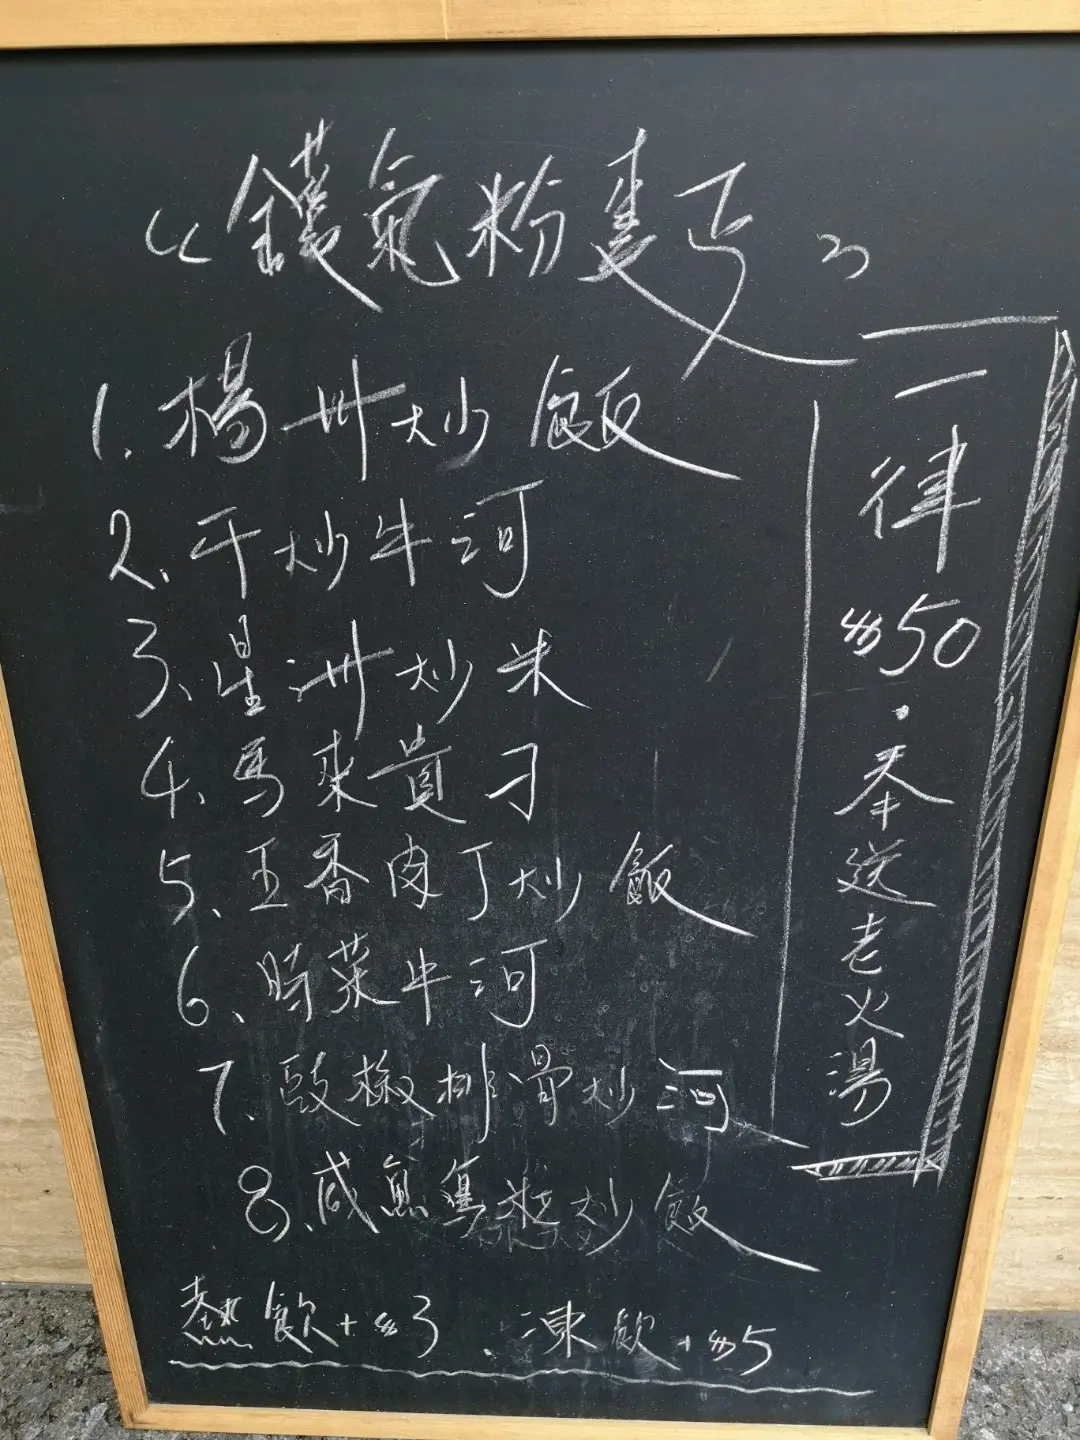 《鑊氣粉麪》
1. 楊州炒飯
2、干炒牛河
3、星洲炒米
4、馬來貴刁
5、五香肉丁炒飯
6、時菜牛河
7. 豉椒排骨炒河
8、咸魚雞粒炒飯
一律$50・奉送老火湯
熱飲+$3、凍飲+$5